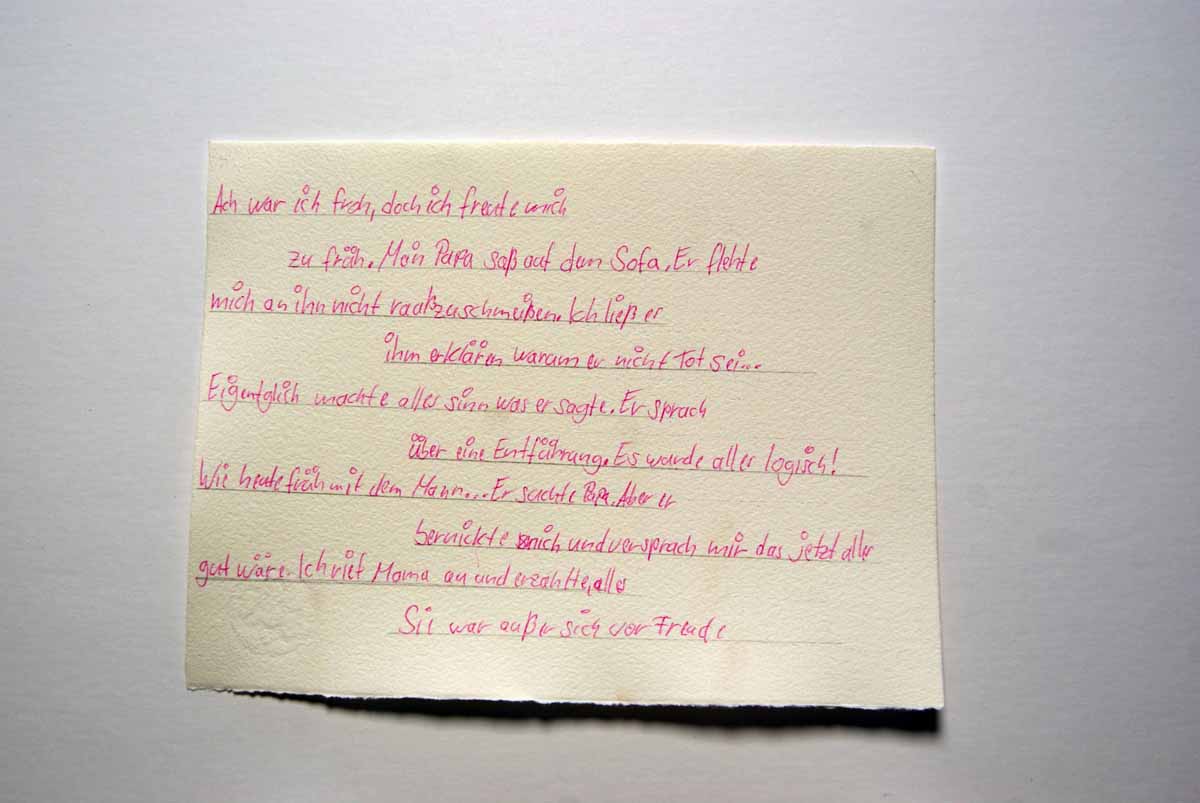 Ach war ich froh, doch ich freute mich
zu früh. Mein Papa saß auf dem Sofa. Er flehte
mich an ihn nicht raußzuschmeißen. Ich ließ er
ihm erklären warum er nicht Tot sei...
Eigentglich machte alles sinn was er sagte. Er sprach
über eine Entführung. Es wurde aller logisch!
Wie heute früh mit dem Mann... Er suchte Papa. Aber er
mich und versprach mir das jetzt aller
gut wäre. Ich rief Mama an und erzählte, alles
Sie war außer sich vor Freude